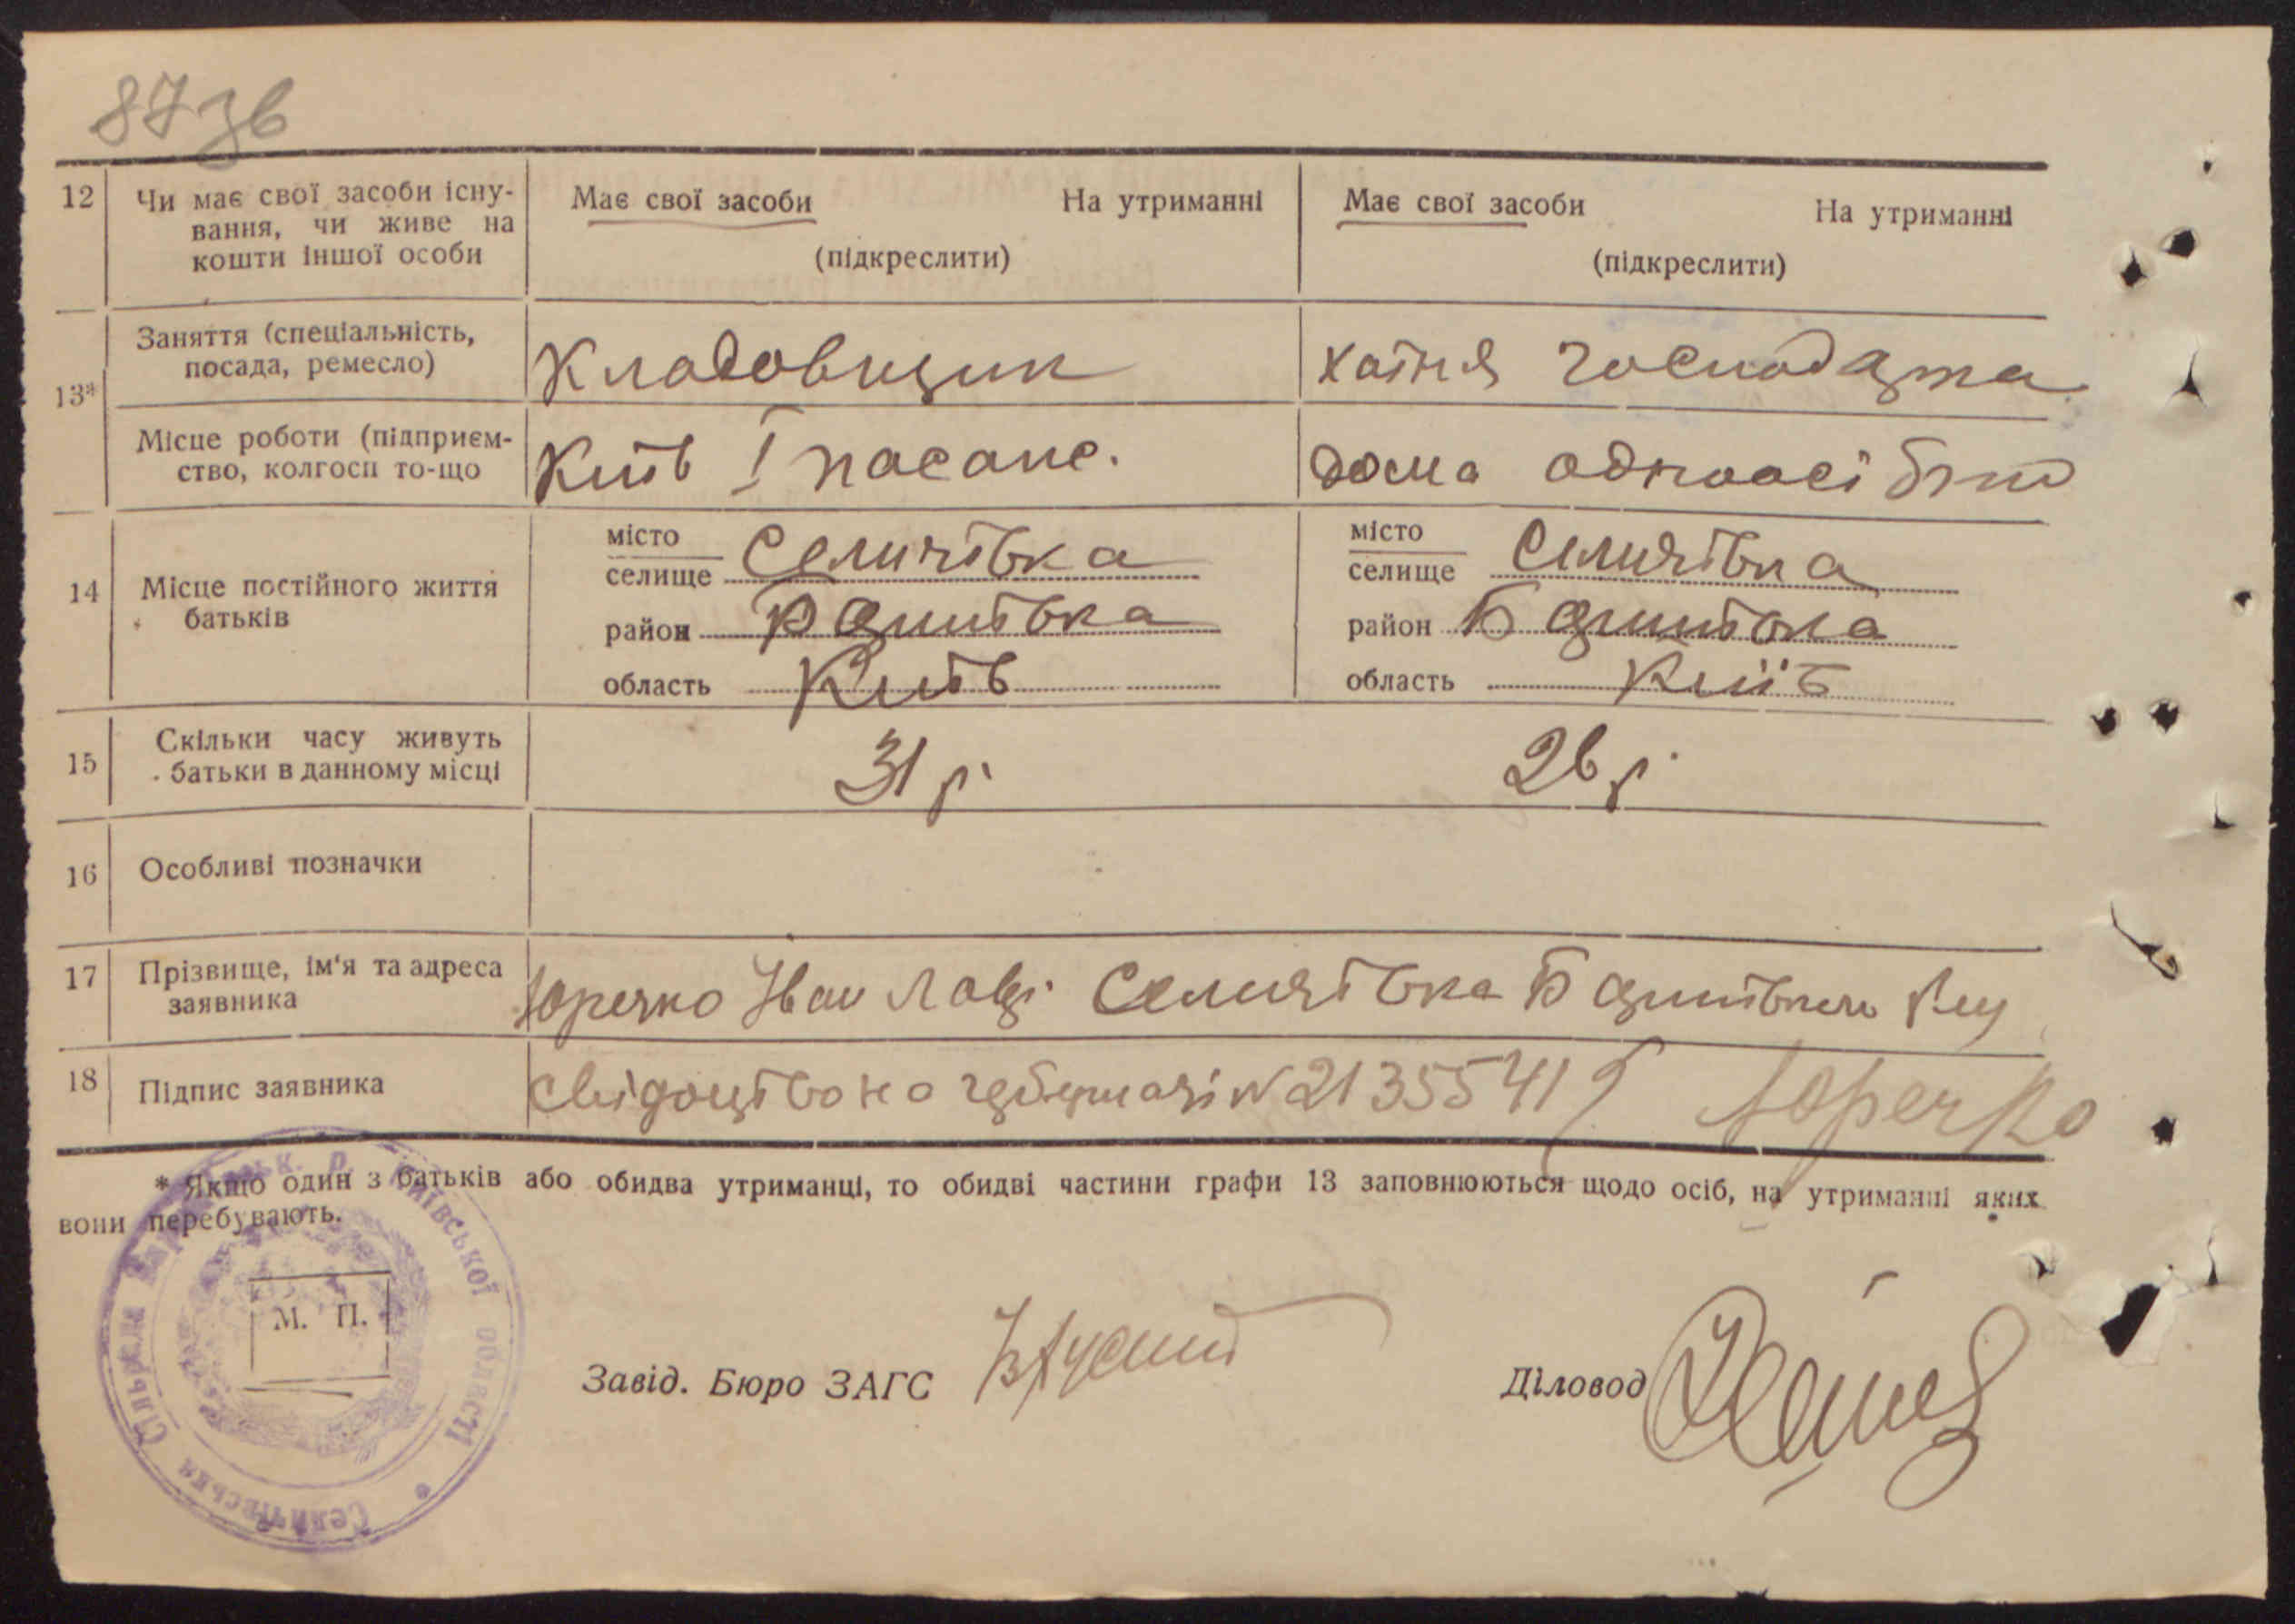 87 зв
12 Чи має свої засоби існу- Має свої засоби На утриманні Має свої засоби На утриманні
вання, чи живе на
кошти іншої особи (підкреслити) (підкреслити)
Заняття (спеціальність,
посада, ремесло) Кладовщик хатня господарка
13*
Місце роботи (підприєм-
ство, колгосп то-що Київ І дома одноосібно
місто місто
селище Селичівка селище Селичівка
14 Місце постійного життя
батьків
район Баришівка район Баришівка
область Київ область Київ
15 Скільки часу живуть
батьки в данному місці 31 р. 26 р.
16 Особливі позначки
17 Прізвище, ім'я та адреса
заявника Юречко Іван Селичівка Баришівського
18 Підпис заявника Свідоцтво № 2135541 Юречко
* Якщо один з батьків або обидва утриманці, то обидві частини графи 13 заповнюються щодо осіб, на утриманні яких
вони перебувають.
Селичівська Сільрада р. Київської області
М. П.
Завід. Бюро ЗАГС
Діловод